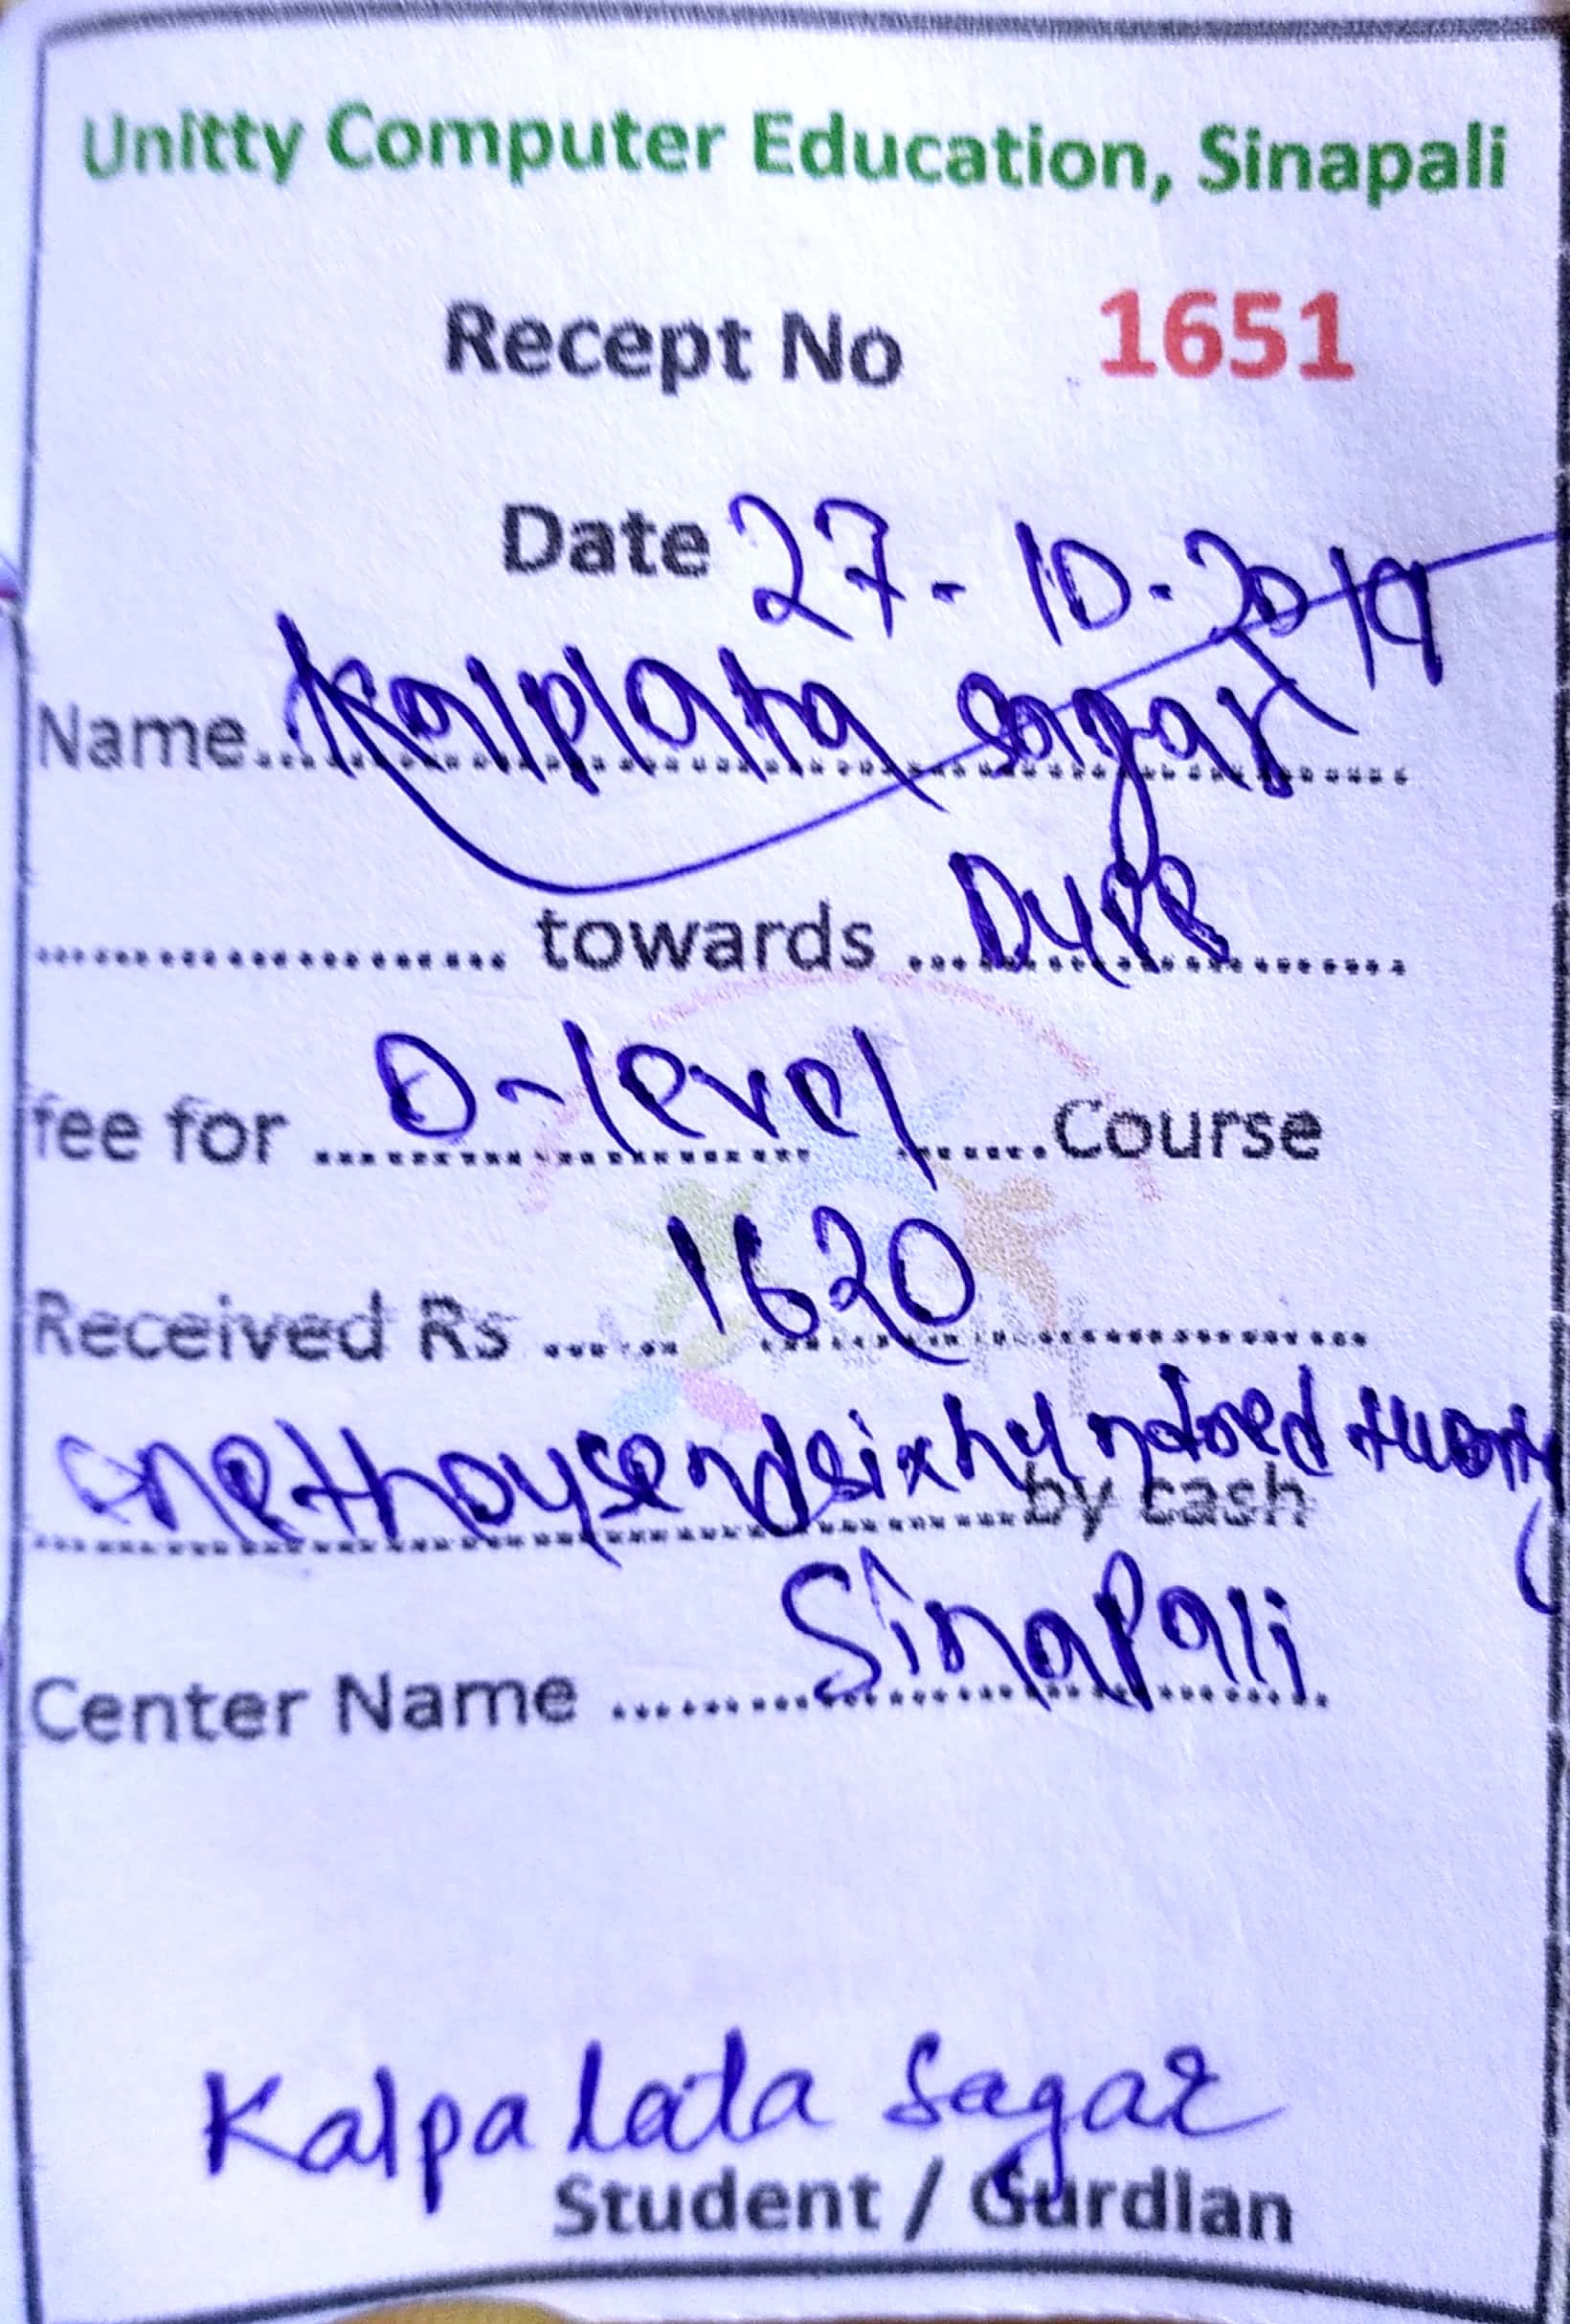 Unitty Computer Education, Sinapali
Recept No 1651
Date 27-10-2019
Name Kalplata sagar
towards Dues
fee for O-level Course
Received Rs 1620
onethousendsixhundred twenty
by cash
Center Name Sinapali
Kalpa lata Sagar
Student / Gurdian